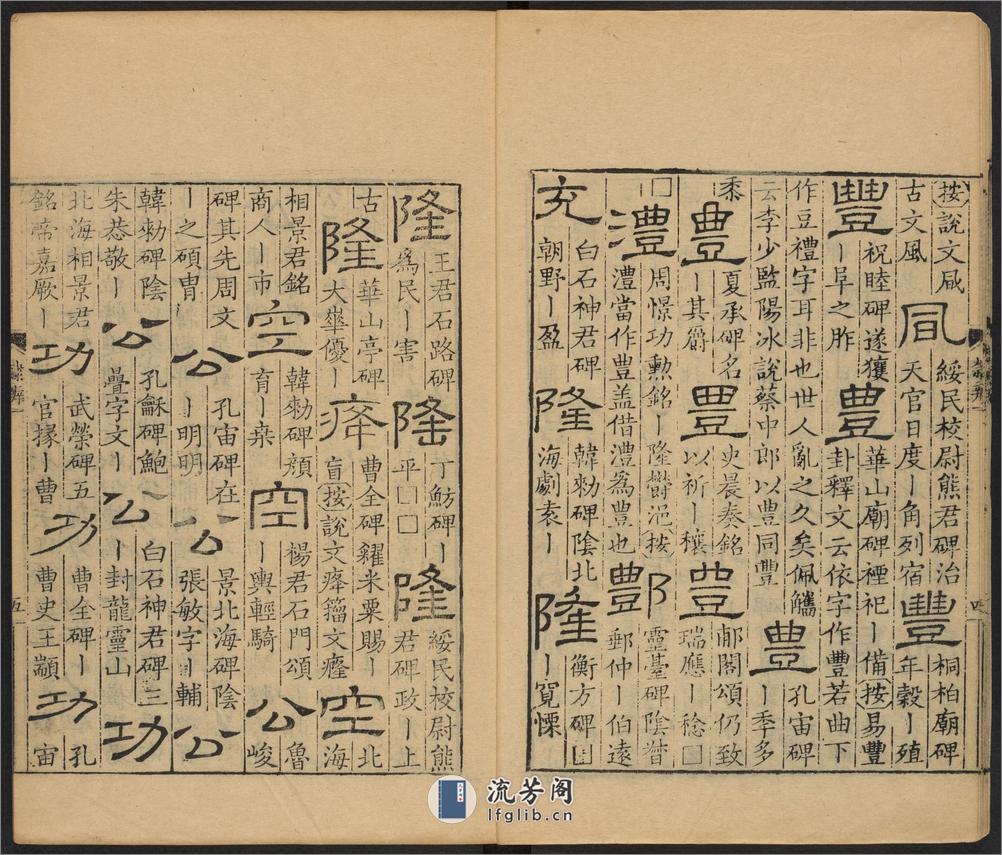 按說文凬
古文風
凬
綏民校尉熊君碑治
天官日度丨角列宿
豐
桐柏廟碑
年穀丨殖
豐
祝睦碑遂獲
丨阜之胙
豐
華山廟碑禋祀丨備按易豐
卦釋文云依字作豐若曲下
作豆禮字耳非也世人亂之久矣佩觿
云李少監陽冰說蔡中郎以豊同豐
豐
孔宙碑
丨季多
黍
豐
夏承碑名
丨其爵
豐
史晨奏銘
以祈丨穰
豐
郙閣頌仍致
瑞應丨稔□
□
灃
周憬功勲銘丨隆鬱浥按
灃當作豐盖借灃為豐也
酆
靈臺碑陰督
郵仲丨伯遠
充
白石神君碑
朝野丨盈
隆
韓勑碑陰北
海劇袁丨
隆
衡方碑□
丨寬慄
四
隸辨一
五
隆
王君石路碑
為民丨害
隆
丁魴碑丨
平□□
隆
綏民校尉熊
君碑政丨上
古
隆
華山亭碑
大崋優丨
癃
曹全碑糴米粟賜丨
盲按說文癃籒文㾮
空
北
海
相景君銘
商人丨市
空
韓勑碑顔
育丨桒
空
楊君石門頌
丨輿輕騎
公
魯
峻
碑其先周文
丨之碩胄
公
孔宙碑在
丨明明
公
景北海碑陰
張敏字丨輔
公
韓勑碑陰
朱恭敬丨
公
孔龢碑鮑
疊字文丨
公
白石神君碑三
丨封龍靈山
功
北海相景君
銘帝嘉厥丨
功
武榮碑五
官掾丨曹
功
曹全碑丨
曹史王顓
功
孔
宙
流芳阁
lfglib.cn